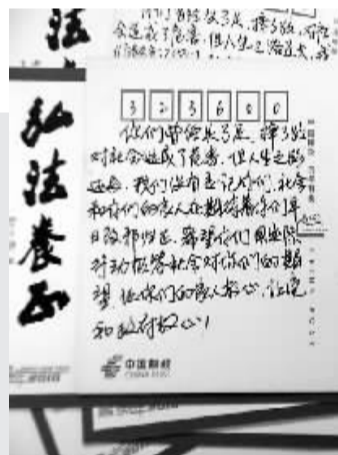 弘法養正
323600
你们曾经失了足、摔了跤
对社会造成了危害,但人生之路
还长,我们没有忘记你们,社会
和你们的家人在期待着你们早
日改邪归正。希望你们用实际
行动报答社会对你们的期
望,让你们的家人放心,让党
和政府放心!
中国邮政
CHINA POST